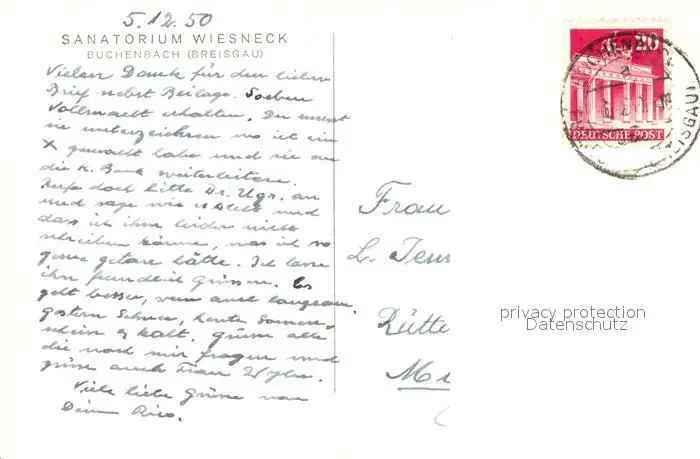 5.12.50
SANATORIUM WIESNECK
BUCHENBACH (BREISGAU)
Vielen Dank für den lieben
Brief nebst Beilage. Soeben
Vollmacht erhalten. Du musst
sie unterzeichnen wo ich ein
X gemacht habe und sie an
die K. Bank weiterleiten.
Rufe doch bitte Dr. Ugr. an
und sage wie es steht und
dass ich ihm leider nicht
schreiben könne, was ich so
gerne getan hätte. Ich lasse
ihn freundlich grüssen. Es
geht besser, wenn auch langsam,
gestern Schnee, heute Sonnen-
schein & kalt. Grüsse alle
die nach mir fragen und
grüsse auch Frau
Viele liebe Grüsse von
Deinem Rico.
20
DEUTSCHE POST
Frau
L.
Rütte
privacy protection
Datenschutz